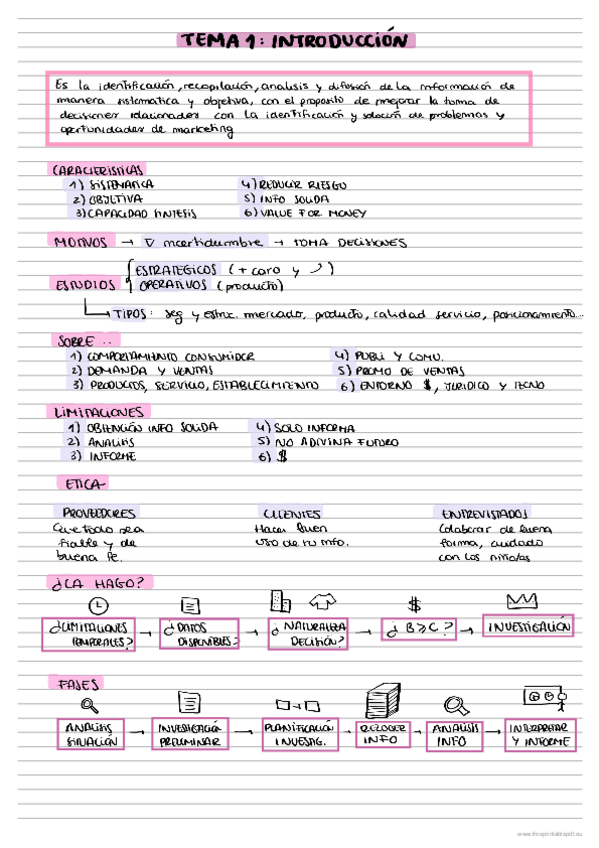 TEMA 1: INTRODUCCIÓN
Es la identificación, recopilación, analisis y difusión de la información de
manera sistematica y objetiva, con el proposito de mejorar la toma de
decisiones relacionadas con la identificación y solución de problemas y
oportunidades de marketing
CARACTERISTICAS
1) SISTEMATICA
2) OBJETIVA
3) CAPACIDAD SINTESIS
4) REDUCIR RIESGO
5) INFO SOLIDA
6) VALUE FOR MONEY
MOTIVOS → ∇ incertidumbre → TOMA DECISIONES
ESTUDIOS { ESTRATEGICOS (+ caro y ↗)
OPERATIVOS (producto)
→ TIPOS: seg y estruc. mercado, producto, calidad servicio, posicionamiento...
SOBRE ..
1) COMPORTAMIENTO CONSUMIDOR
2) DEMANDA Y VENTAS
3) PRODUCTOS, SERVICIO, ESTABLECIMIENTO
4) PUBLI Y COMU.
5) PROMO DE VENTAS
6) ENTORNO $, JURIDICO Y TECNO
LIMITACIONES
1) OBTENCIÓN INFO SOLIDA
2) ANALISIS
3) INFORME
4) SOLO INFORMA
5) NO ADIVINA FUTURO
6) $
ETICA
PROVEEDORES
Que todo sea
fiable y de
buena fe.
CLIENTES
Hacer buen
uso de tu info.
ENTREVISTADOS
Colaborar de buena
forma, cuidado
con los niño/as
¿LA HAGO?
¿LIMITACIONES
TEMPORALES? →
¿DATOS
DISPONIBLES? →
¿NATURALEZA
DECISIÓN? →
$
¿B≥C? →
INVESTIGACIÓN
FASES
ANALISIS
SITUACIÓN →
INVESTIGACIÓN
PRELIMINAR →
PLANIFICACIÓN
INVESTIG. →
RECOGER
INFO →
ANALISIS
INFO →
INTERPRETAR
Y INFORME
www.freeprintablepdf.eu